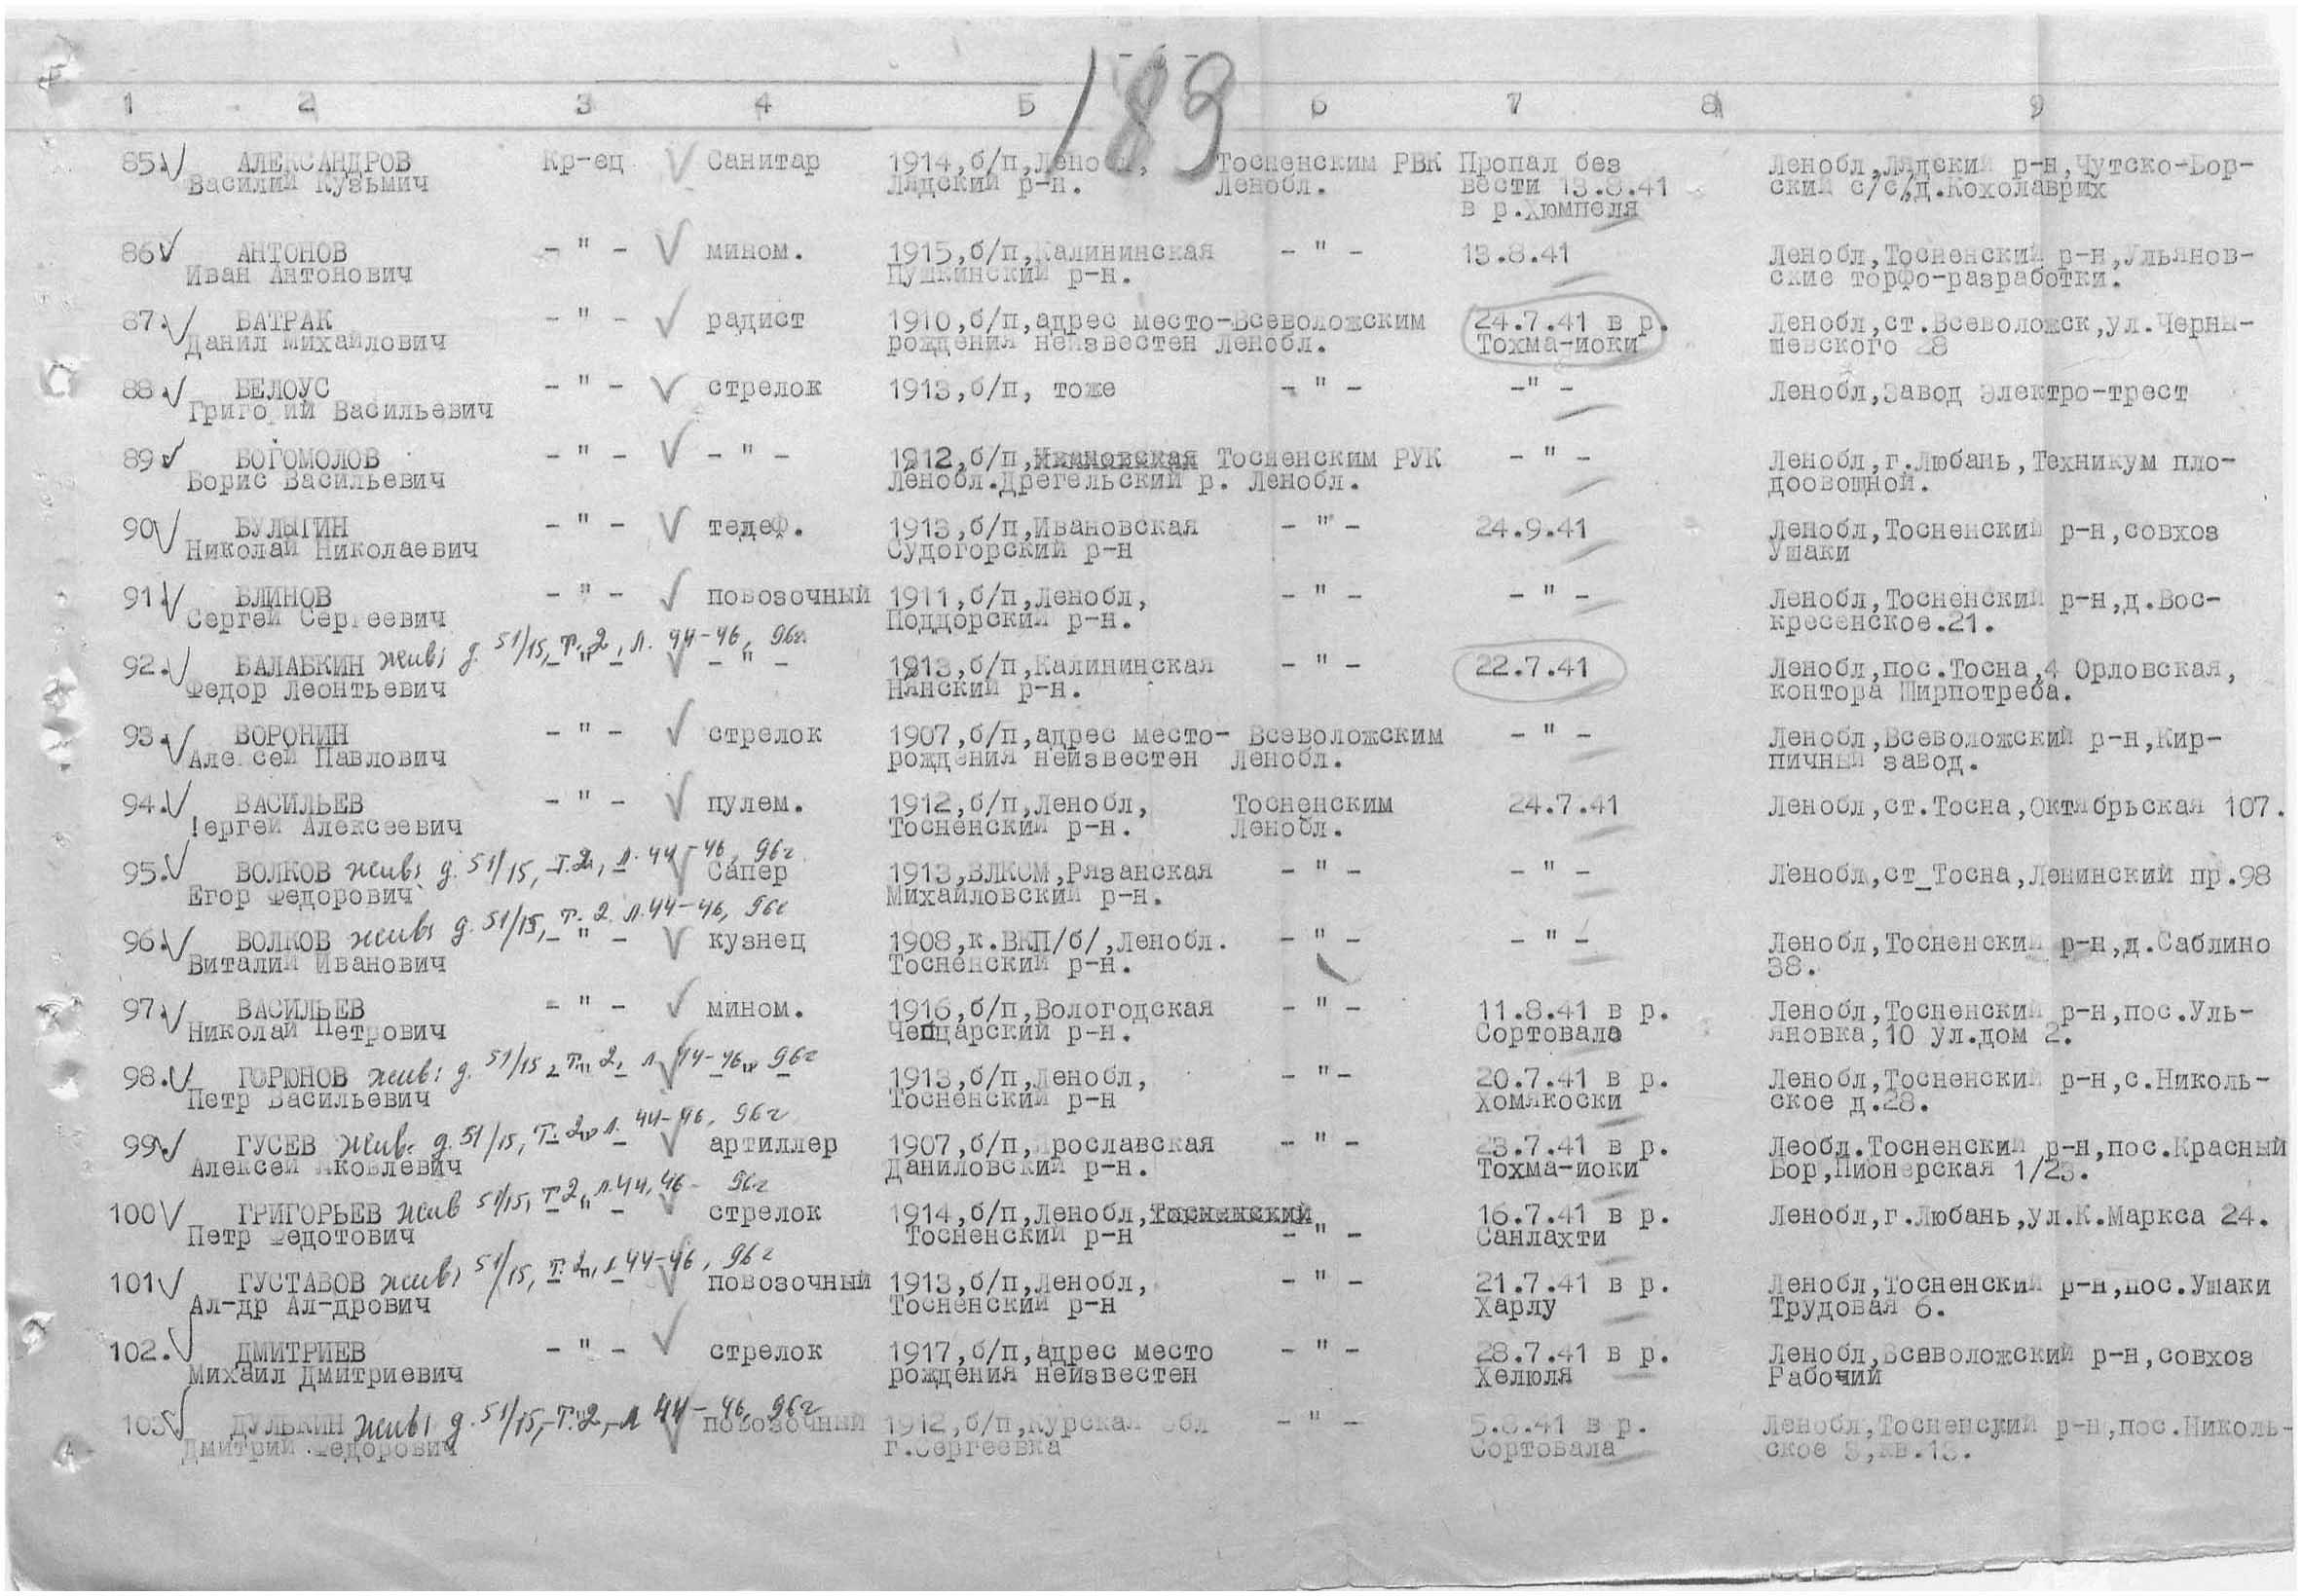 - 6 -
183
1 2 3 4 5 6 7 8 9
85. АЛЕКСАНДРОВ Кр-ец Санитар 1914,б/п,Ленобл, Тосненским РВК Пропал без Ленобл,Лядский р-н,Чутско-Бор-
Василий Кузьмич Лядский р-н. Ленобл. вести 13.8.41 ский с/с,д.Кохолаврих
в р.Хюмпеля
86 АНТОНОВ - " - мином. 1915,б/п,Калининская - " - 13.8.41 Ленобл,Тосненский р-н,Ульянов-
Иван Антонович Пушкинский р-н. ские торфо-разработки.
87. БАТРАК - " - радист 1910,б/п,адрес место-Всеволожским 24.7.41 в р. Ленобл,ст.Всеволожск,ул.Черны-
Данил Михайлович рождения неизвестен Ленобл. Тохма-иоки шевского 28
88. БЕЛОУС - " - стрелок 1913,б/п, тоже - " - -" - Ленобл,Завод Электро-трест
Григорий Васильевич
89 БОГОМОЛОВ - " - - " - 1912,б/п,Ивановская Тосненским РУК - " - Ленобл,г.Любань,Техникум пло-
Борис Васильевич Ленобл.Дрегельский р. Ленобл. доовощной.
90 БУЛЫГИН - " - телеф. 1913,б/п,Ивановская - " - 24.9.41 Ленобл,Тосненский р-н,совхоз
Николай Николаевич Судогорский р-н Ушаки
91. БЛИНОВ - " - повозочный 1911,б/п,Ленобл, - " - - " - Ленобл,Тосненский р-н,д.Вос-
Сергей Сергеевич Поддорский р-н. кресенское.21.
92. БАЛАБКИН жив: д. 51/15, т. 2, л. 44-46, 96г. - " - - " - 1913,б/п,Калининская - " - 22.7.41 Ленобл,пос.Тосна,4 Орловская,
Федор Леонтьевич ский р-н. контора Ширпотреба.
93. ВОРОНИН - " - стрелок 1907,б/п,адрес место- Всеволожским - " - Ленобл,Всеволожский р-н,Кир-
Алексей Павлович рождения неизвестен Ленобл. пичный завод.
94. ВАСИЛЬЕВ - " - пулем. 1912,б/п,Ленобл, Тосненским 24.7.41 Ленобл,ст.Тосна,Октябрьская 107.
Сергей Алексеевич Тосненский р-н. Ленобл.
95. ВОЛКОВ жив: д. 51/15, т. 2, л. 44-46, 96г Сапер 1913,ВЛКСМ,Рязанская - " - - " - Ленобл,ст_Тосна,Ленинский пр.98
Егор Федорович Михайловский р-н.
96. ВОЛКОВ жив: д. 51/15, т. 2 л. 44-46, 96г - " - кузнец 1908,к.ВКП/б/,Ленобл. - " - - " - Ленобл,Тосненский р-н,д.Саблино
Виталий Иванович Тосненский р-н. 38.
97. ВАСИЛЬЕВ - " - мином. 1916,б/п,Вологодская - " - 11.8.41 в р. Ленобл,Тосненский р-н,пос.Уль-
Николай Петрович Чепцарский р-н. Сортовала яновка,10 ул.дом 2.
98. ГОРЮНОВ жив: д. 51/15, т. 2, л. 44-46, 96г - " - - " - 1913,б/п,Ленобл, - " - 20.7.41 в р. Ленобл,Тосненский р-н,с.Николь-
Петр Васильевич Тосненский р-н Хомякоски ское д.28.
99. ГУСЕВ жив: д. 51/15, т. 2, л. 44-46, 96г - " - артиллер 1907,б/п,Ярославская - " - 23.7.41 в р. Леобл.Тосненский р-н,пос.Красный
Алексей Яковлевич Даниловский р-н. Тохма-иоки Бор,Пионерская 1/23.
100 ГРИГОРЬЕВ жив 51/15, т. 2, л. 44,46- 96г - " - стрелок 1914,б/п,Ленобл,Тосненский 16.7.41 в р. Ленобл,г.Любань,ул.К.Маркса 24.
Петр Федотович Тосненский р-н - " - Санлахти
101 ГУСТАВОВ жив: 51/15, т. 2, л. 44-46, 96г - " - повозочный 1913,б/п,Ленобл, - " - 21.7.41 в р. Ленобл,Тосненский р-н,пос.Ушаки
Ал-др Ал-дрович Тосненский р-н Харлу Трудовая 6.
102. ДМИТРИЕВ - " - стрелок 1917,б/п,адрес место - " - 28.7.41 в р. Ленобл,Всеволожский р-н,совхоз
Михаил Дмитриевич рождения неизвестен Хелюля Рабочий
103 ДУЛЬКИН жив: д. 51/15, т. 2, л 44-46, 96г - " - повозочный 1912,б/п,Курская обл - " - 5.8.41 в р. Ленобл,Тосненский р-н,пос.Николь-
Дмитрий Федорович г.Сергеевка Сортовала ское 3,кв.13.